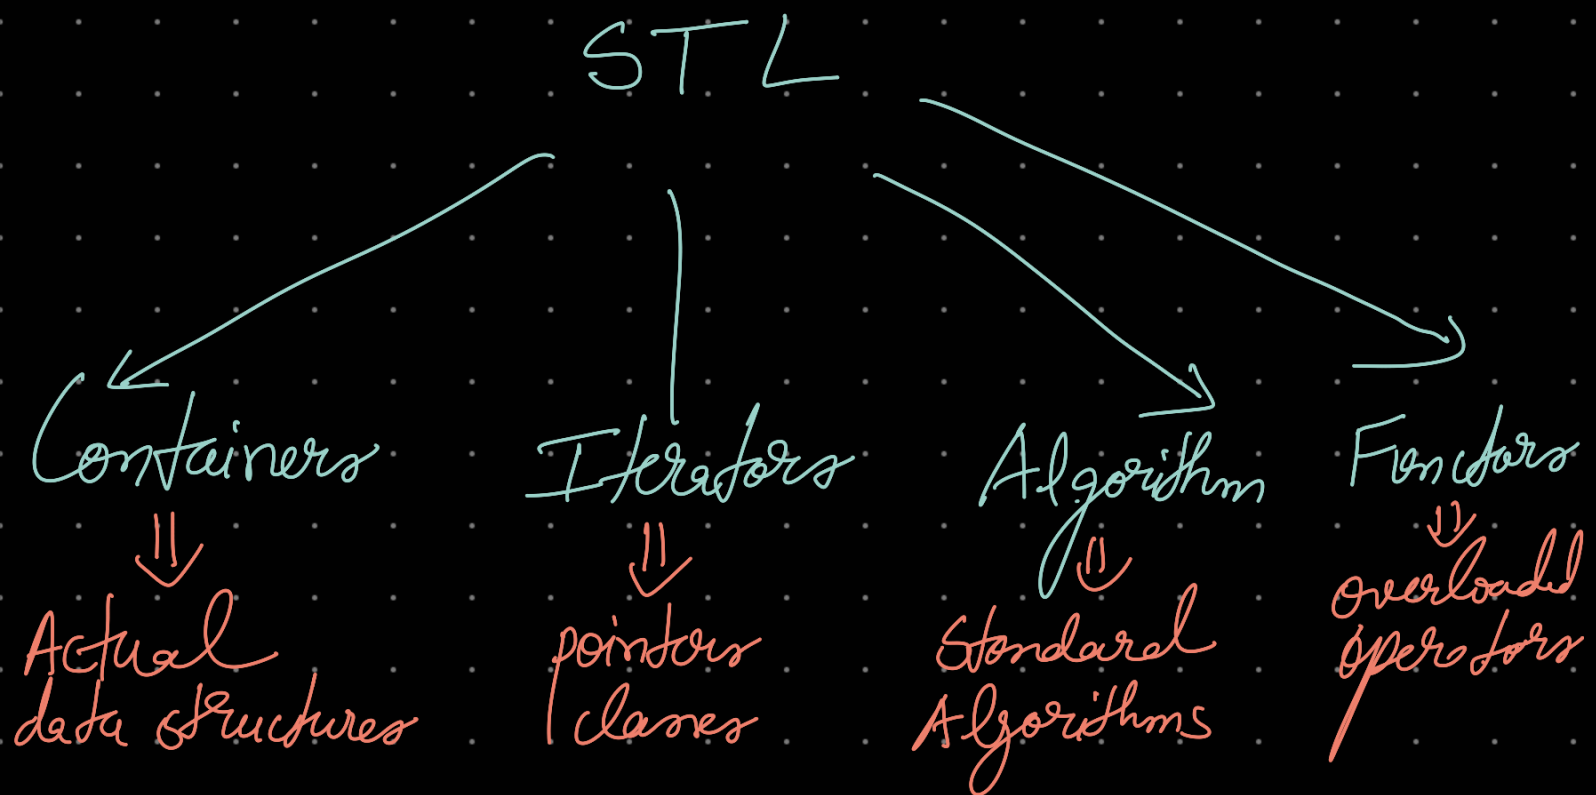 STL
Containers
Iterators
Algorithm
Functors
Actual
data structures
pointors
classes
Standard
Algorithms
overloaded
operators